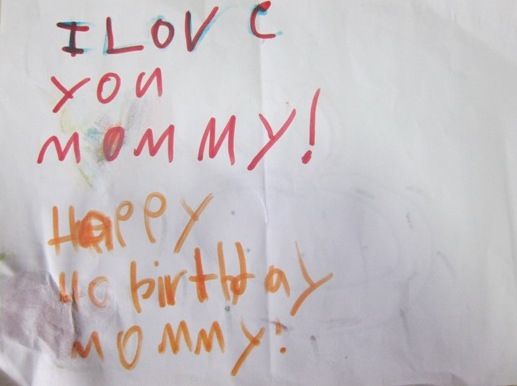 I LOVE
YOU
MOMMY!
Happy
birthday
MOMMY!